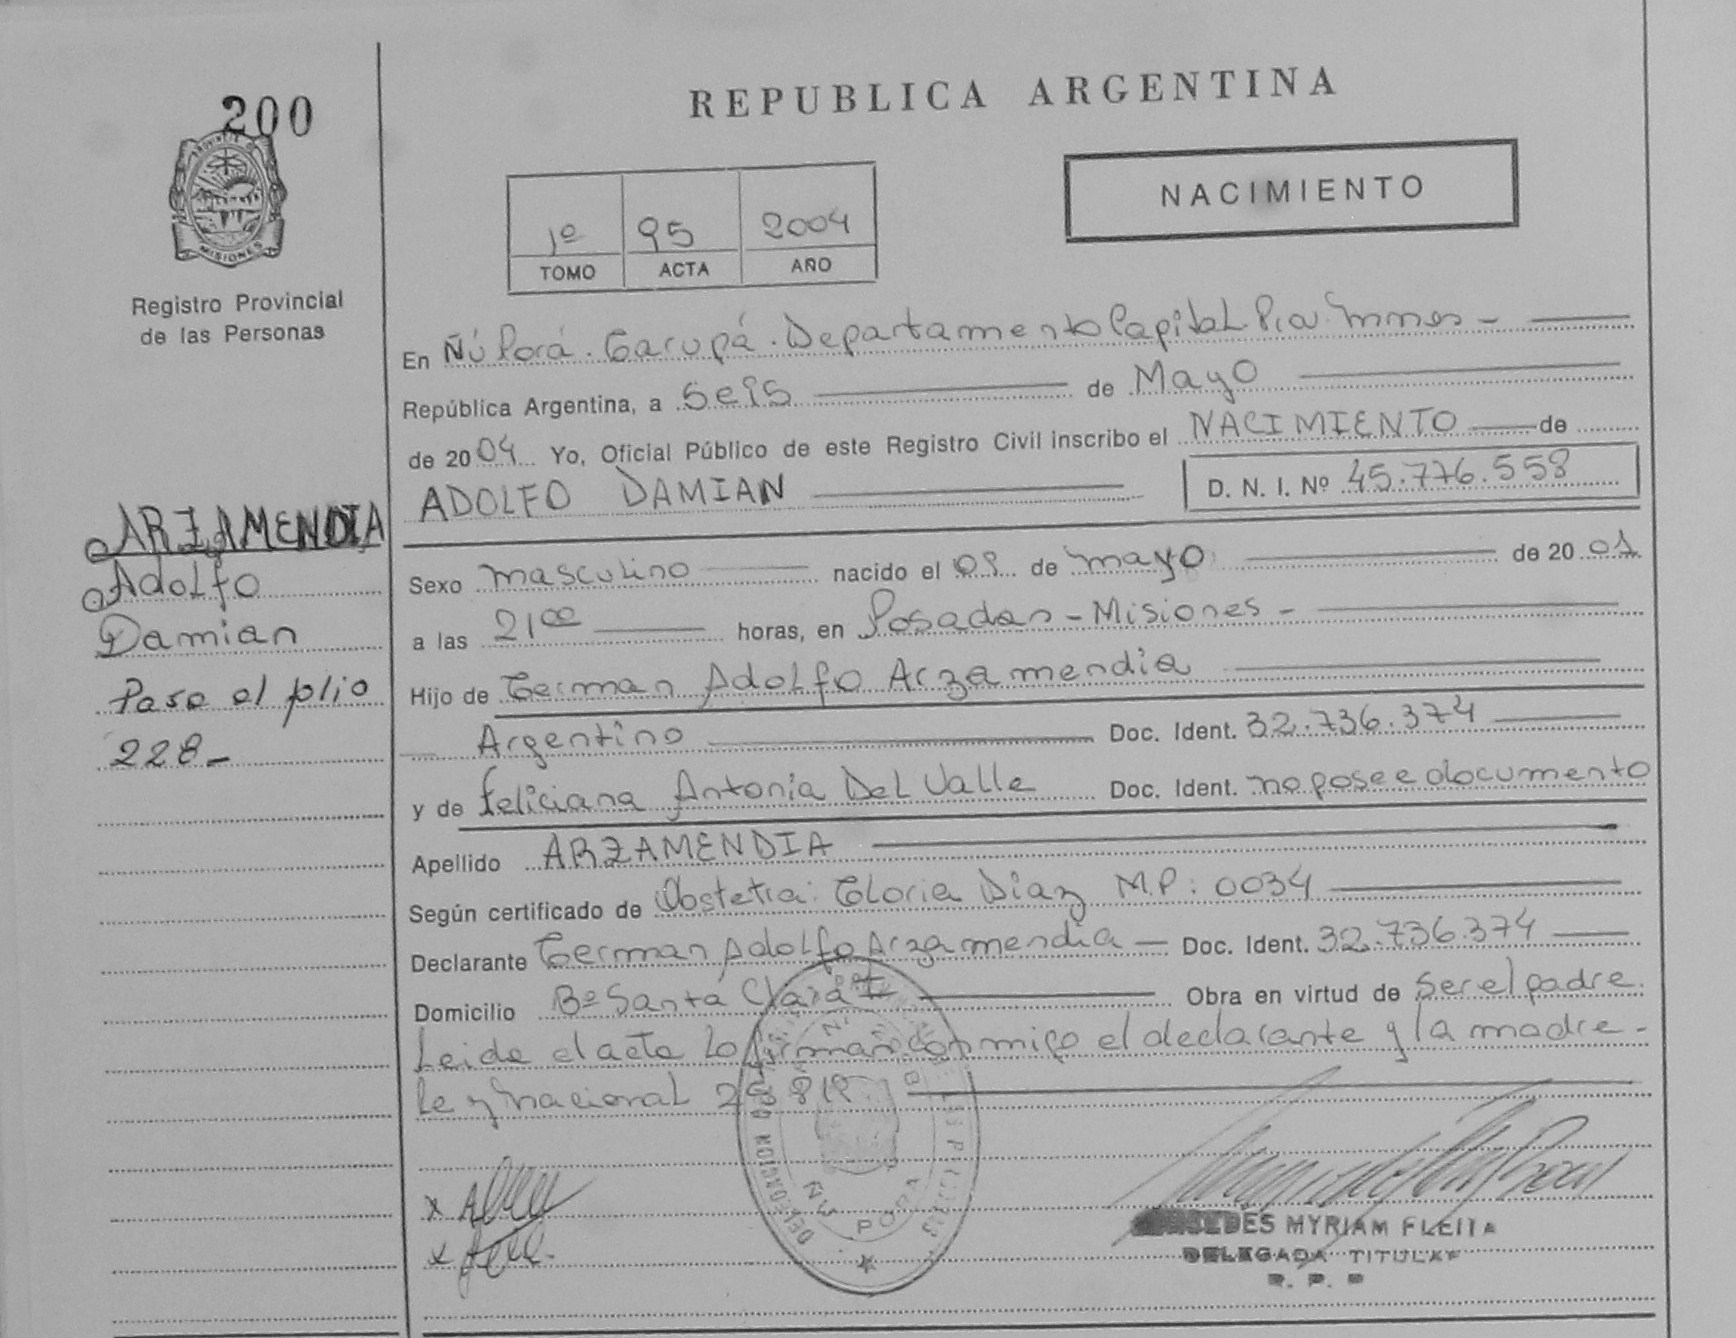 200
PROVINCIA DE
MISIONES
Registro Provincial
de las Personas
REPUBLICA ARGENTINA
NACIMIENTO
1º 95 2004
TOMO ACTA AÑO
En Ñú Porá. Garupá. Departamento Capital
República Argentina, a seis de Mayo
de 2004 Yo, Oficial Público de este Registro Civil inscribo el NACIMIENTO de
ADOLFO DAMIAN D. N. I. Nº 45.776.558
ARZAMENDIA
Adolfo
Damian
Pasa al folio
228-
Sexo masculino nacido el de mayo de 20
a las 21 00 horas, en Posadas - Misiones -
Hijo de German Adolfo Arzamendia
Argentino Doc. Ident. 32.736.374
y de feliciana Antonia Del Valle Doc. Ident. no posee documento
Apellido ARZAMENDIA
Según certificado de Obstetra: Gloria Diaz M.P: 0034
Declarante German Adolfo Arzamendia Doc. Ident. 32.736.374
Domicilio Bº Santa Clara Obra en virtud de ser el padre.
Leida el acta la firman conmigo el declarante y la madre -
Ley nacional
DELEGACION
ÑU PORA
MYRIAM FLEITA
DELEGADA TITULAR
R. P. P